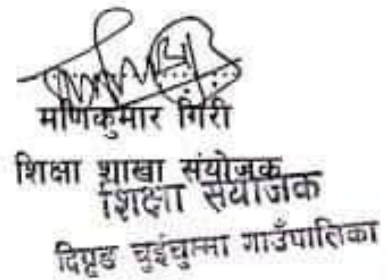 मणिकुमार गिरी
शिक्षा शाखा संयोजक
शिक्षा संयोजक
दिप्रुङ चुइचुम्मा गाउँपालिका